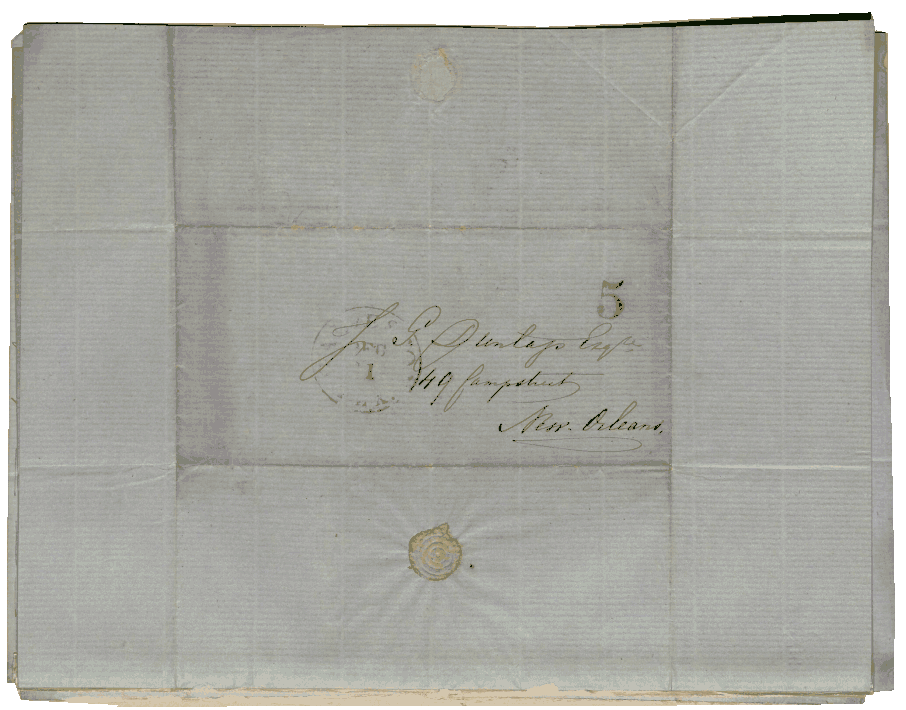 5
J. G. Dunlap Esqre
149 Campstreet
New-Orleans.
1